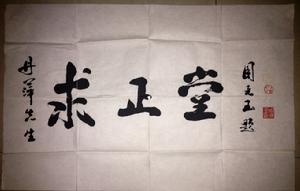 丹萍先生
求正堂
周玉题